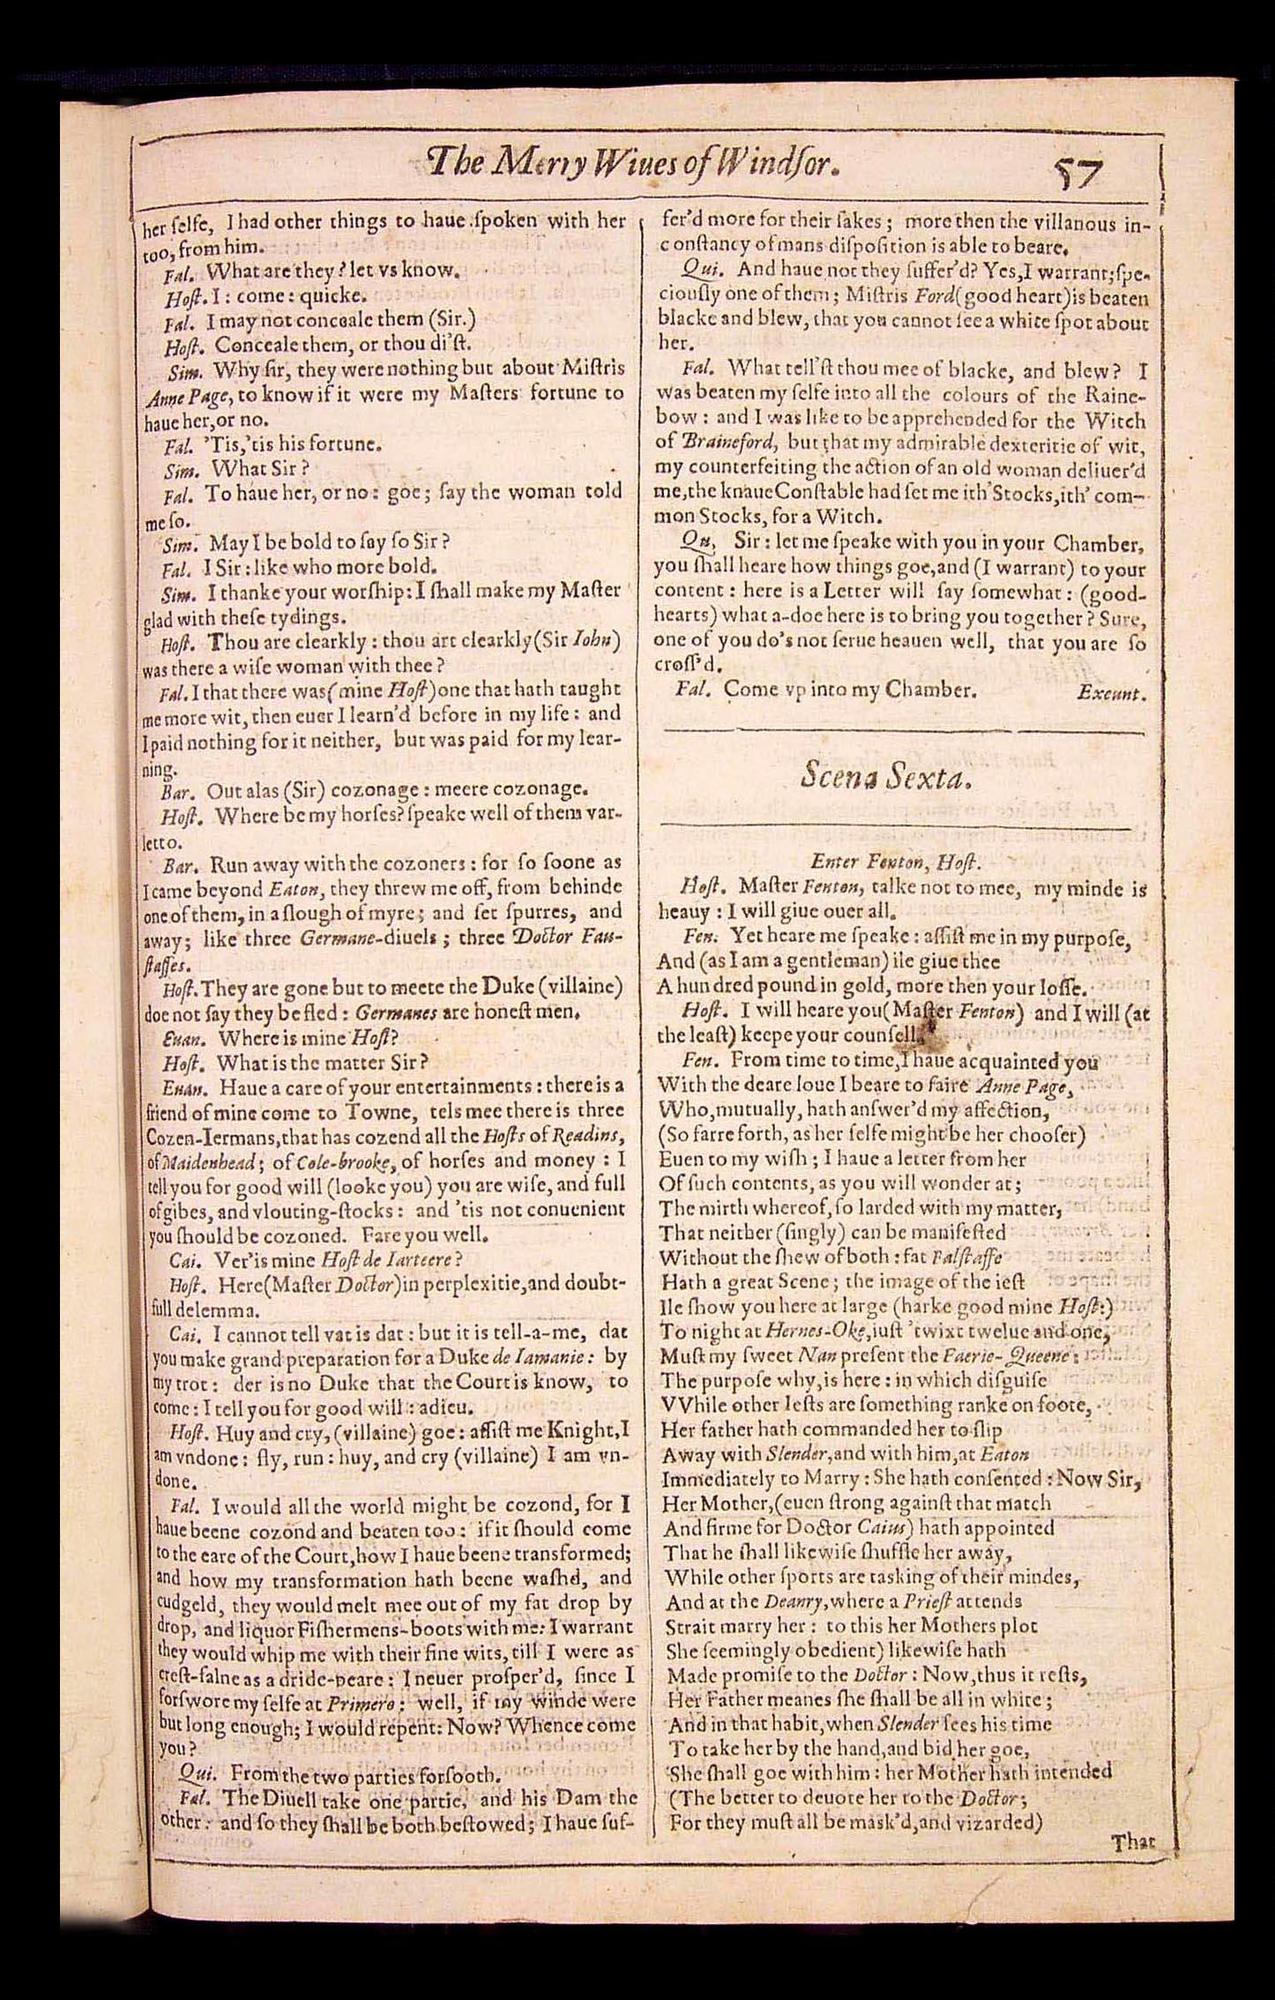 The Merry Wiues of Windſor.
57
her ſelfe, I had other things to haue ſpoken with her
too, from him.
Fal. What are they? let vs know.
Hoſt. I: come: quicke.
Fal. I may not conceale them (Sir.)
Hoſt. Conceale them, or thou di'ſt.
Sim. Why ſir, they were nothing but about Miſtris
Anne Page, to know if it were my Maſters fortune to
haue her, or no.
Fal. 'Tis, 'tis his fortune.
Sim. What Sir?
Fal. To haue her, or no: goe; ſay the woman told
me ſo.
Sim. May I be bold to ſay ſo Sir?
Fal. I Sir: like who more bold.
Sim. I thanke your worſhip: I ſhall make my Maſter
glad with theſe tydings.
Hoſt. Thou are clearkly: thou art clearkly (Sir Iohn)
was there a wiſe woman with thee?
Fal. I that there was (mine Hoſt) one that hath taught
me more wit, then euer I learn'd before in my life: and
I paid nothing for it neither, but was paid for my lear-
ning.
Bar. Out alas (Sir) cozonage: meere cozonage.
Hoſt. Where be my horſes? ſpeake well of them var-
letto.
Bar. Run away with the cozoners: for ſo ſoone as
I came beyond Eaton, they threw me off, from behinde
one of them, in a ſlough of myre; and ſet ſpurres, and
away; like three Germane-diuels; three Doctor Fau-
ſtaſſes.
Hoſt. They are gone but to meete the Duke (villaine)
doe not ſay they be fled: Germanes are honeſt men.
Euan. Where is mine Hoſt?
Hoſt. What is the matter Sir?
Euan. Haue a care of your entertainments: there is a
friend of mine come to Towne, tels mee there is three
Cozen-Iermans, that has cozend all the Hoſts of Readins,
of Maidenhead; of Cole-brooke, of horſes and money: I
tell you for good will (looke you) you are wiſe, and full
of gibes, and vlouting-ſtocks: and 'tis not conuenient
you ſhould be cozoned. Fare you well.
Cai. Ver'is mine Hoſt de Iarteere?
Hoſt. Here (Maſter Doctor) in perplexitie, and doubt-
full delemma.
Cai. I cannot tell vat is dat: but it is tell-a-me, dat
you make grand preparation for a Duke de Iamanie: by
my trot: der is no Duke that the Court is know, to
come: I tell you for good will: adieu.
Hoſt. Huy and cry, (villaine) goe: aſſiſt me Knight, I
am vndone: fly, run: huy, and cry (villaine) I am vn-
done.
Fal. I would all the world might be cozond, for I
haue beene cozond and beaten too: if it ſhould come
to the eare of the Court, how I haue beene transformed;
and how my transformation hath beene waſhd, and
cudgeld, they would melt mee out of my fat drop by
drop, and liquor Fiſhermens-boots with me: I warrant
they would whip me with their fine wits, till I were as
creſt-falne as a dride-peare: I neuer proſper'd, ſince I
forſwore my ſelfe at Primero: well, if my winde were
but long enough; I would repent: Now? Whence come
you?
Qui. From the two parties forſooth.
Fal. The Diuell take one partie, and his Dam the
other: and ſo they ſhall be both beſtowed; I haue ſuf-
fer'd more for their ſakes; more then the villanous in-
conſtancy of mans diſpoſition is able to beare.
Qui. And haue not they ſuffer'd? Yes, I warrant; ſpe-
ciouſly one of them; Miſtris Ford (good heart) is beaten
blacke and blew, that you cannot ſee a white ſpot about
her.
Fal. What tell'ſt thou mee of blacke, and blew? I
was beaten my ſelfe into all the colours of the Raine-
bow: and I was like to be apprehended for the Witch
of Braineford, but that my admirable dexteritie of wit,
my counterfeiting the action of an old woman deliuer'd
me, the knaue Conſtable had ſet me ith' Stocks, ith' com-
mon Stocks, for a Witch.
Qu, Sir: let me ſpeake with you in your Chamber,
you ſhall heare how things goe, and (I warrant) to your
content: here is a Letter will ſay ſomewhat: (good-
hearts) what a-doe here is to bring you together? Sure,
one of you do's not ſerue heauen well, that you are ſo
croſſ'd.
Fal. Come vp into my Chamber. Exeunt.
Scena Sexta.
Enter Fenton, Hoſt.
Hoſt. Maſter Fenton, talke not to mee, my minde is
heauy: I will giue ouer all.
Fen. Yet heare me ſpeake: aſſiſt me in my purpoſe,
And (as I am a gentleman) ile giue thee
A hundred pound in gold, more then your loſſe.
Hoſt. I will heare you (Maſter Fenton) and I will (at
the leaſt) keepe your counſell.
Fen. From time to time, I haue acquainted you
With the deare loue I beare to faire Anne Page,
Who, mutually, hath anſwer'd my affection,
(So farre forth, as her ſelfe might be her chooſer)
Euen to my wiſh; I haue a letter from her
Of ſuch contents, as you will wonder at;
The mirth whereof, ſo larded with my matter,
That neither (ſingly) can be manifeſted
Without the ſhew of both: fat Falſtaffe
Hath a great Scene; the image of the ieſt
Ile ſhow you here at large (harke good mine Hoſt:)
To night at Hernes-Oke, iuſt 'twixt twelue and one,
Muſt my ſweet Nan preſent the Faerie-Queene:
The purpoſe why, is here: in which diſguiſe
VVhile other Ieſts are ſomething ranke on foote,
Her father hath commanded her to ſlip
Away with Slender, and with him, at Eaton
Immediately to Marry: She hath conſented: Now Sir,
Her Mother, (euen ſtrong againſt that match
And firme for Doctor Caius) hath appointed
That he ſhall likewiſe ſhuffle her away,
While other ſports are tasking of their mindes,
And at the Deanry, where a Prieſt attends
Strait marry her: to this her Mothers plot
She ſeemingly obedient) likewiſe hath
Made promiſe to the Doctor: Now, thus it reſts,
Her Father meanes ſhe ſhall be all in white;
And in that habit, when Slender ſees his time
To take her by the hand, and bid her goe,
She ſhall goe with him: her Mother hath intended
(The better to deuote her to the Doctor;
For they muſt all be mask'd, and vizarded)
That